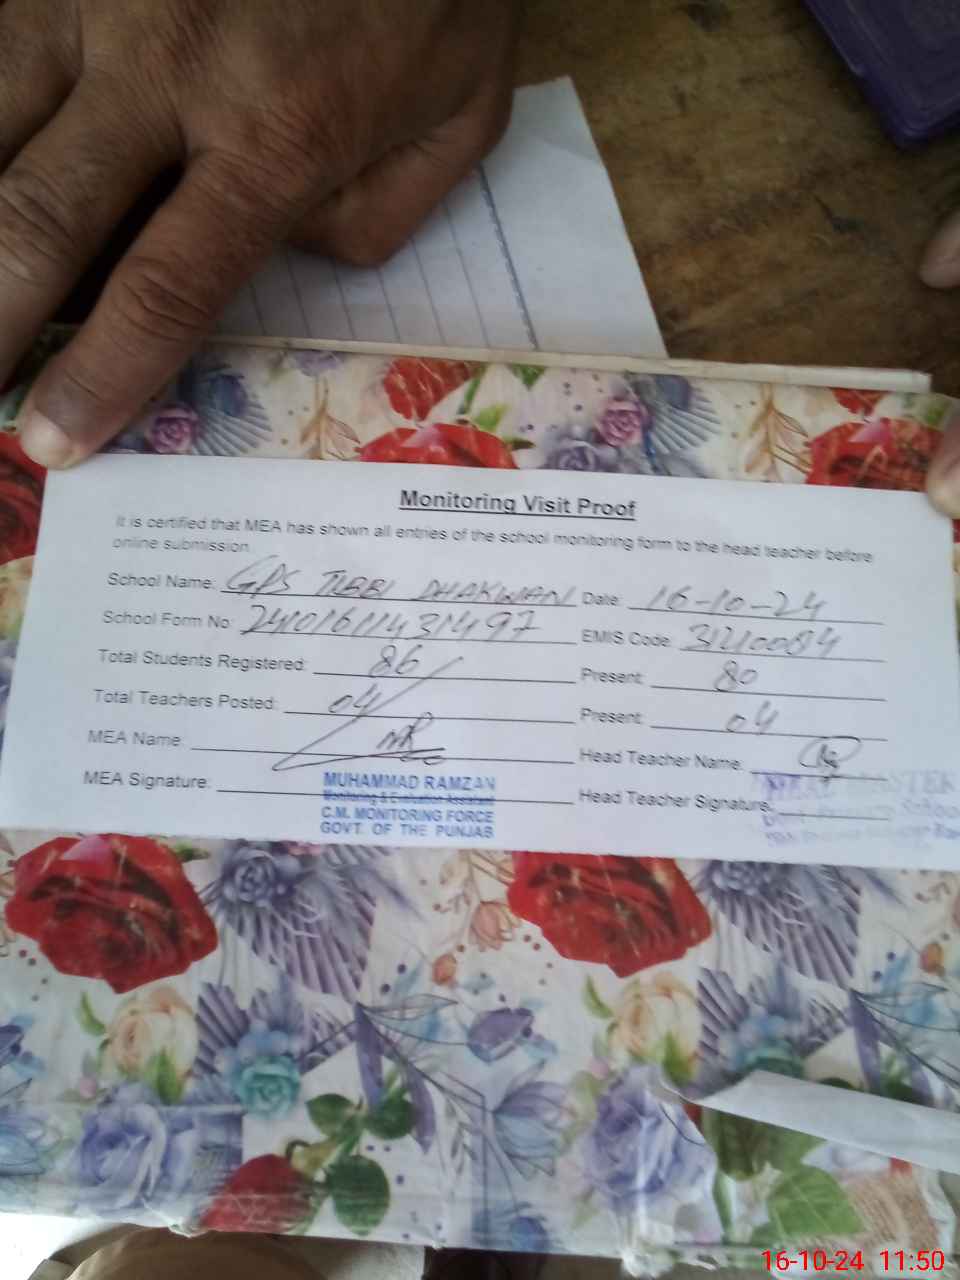 Monitoring Visit Proof
It is certified that MEA has shown all entries of the school monitoring form to the head teacher before
online submission
School Name: GPS TIBBI DHAKWAN Date: 16-10-24
School Form No: 24101611431497 EMIS Code: 31210084
Total Students Registered: 86 Present: 80
Total Teachers Posted: 04 Present: 04
MEA Name: Head Teacher Name:
MEA Signature: Head Teacher Signature:
MUHAMMAD RAMZAN
Monitoring & Evaluation Assistant
C.M. MONITORING FORCE
GOVT. OF THE PUNJAB
16-10-24 11:50